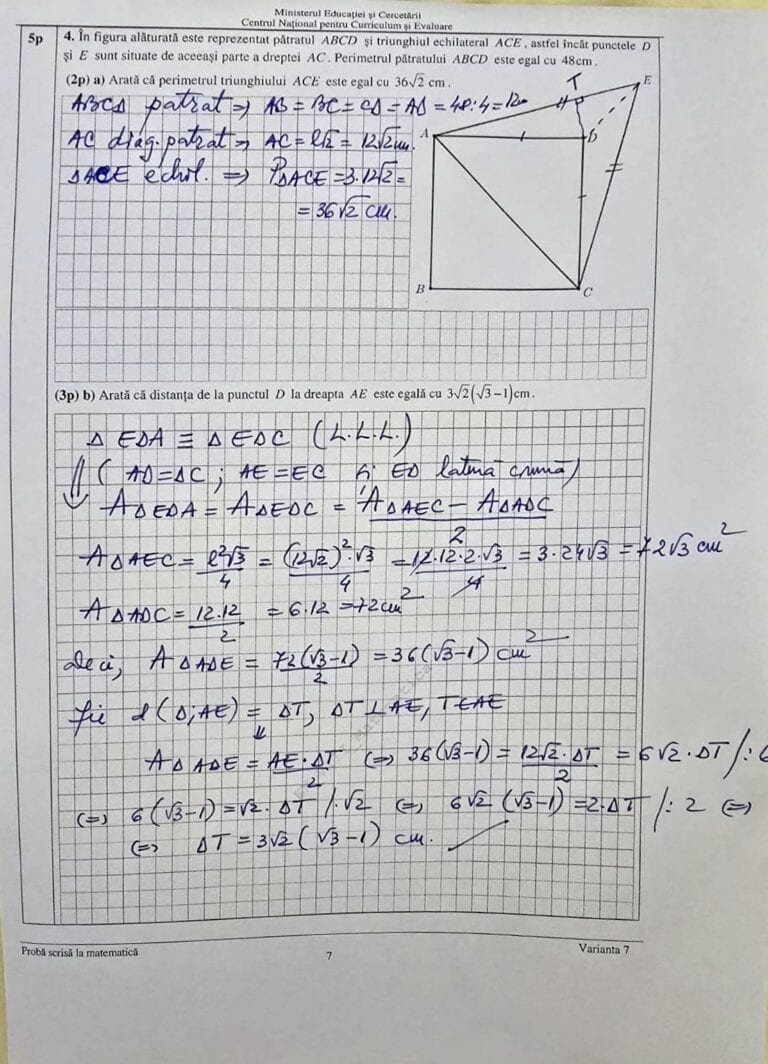 Ministerul Educației și Cercetării
Centrul Național pentru Curriculum și Evaluare
5p
4. În figura alăturată este reprezentat pătratul ABCD și triunghiul echilateral ACE, astfel încât punctele D
și E sunt situate de aceeași parte a dreptei AC. Perimetrul pătratului ABCD este egal cu 48cm.
(2p) a) Arată că perimetrul triunghiului ACE este egal cu 36√2 cm.
ABCD patrat => AB = BC = CD = AD = 48:4 = 12cm
AC diag. patrat => AC = l√2 = 12√2 cm.
ΔACE echil. => PΔACE = 3·12√2 =
= 36√2 cm.
T
E
A
D
B
C
(3p) b) Arată că distanța de la punctul D la dreapta AE este egală cu 3√2(√3−1)cm.
Δ EDA ≡ Δ EDC (L.L.L.)
⇓ (AD=DC ; AE=EC și ED latură comună)
AΔEDA = AΔEDC = (AΔAEC − AΔADC)/2
AΔAEC = l²√3/4 = (12√2)²·√3/4 = 12·12·2·√3/4 = 3·24√3 = 72√3 cm²
AΔADC = 12·12/2 = 6·12 = 72cm²
Deci, AΔADE = 72(√3−1)/2 = 36(√3−1) cm²
Fie d(D;AE) = DT, DT⊥AE, T∈AE
⇓
AΔADE = AE·DT/2 (=> 36(√3−1) = 12√2·DT/2 = 6√2·DT /:6
(=> 6(√3−1) = √2·DT /·√2 (=> 6√2 (√3−1) = 2·DT /:2 (=>
(=> DT = 3√2(√3−1) cm.
Probă scrisă la matematică
7
Varianta 7